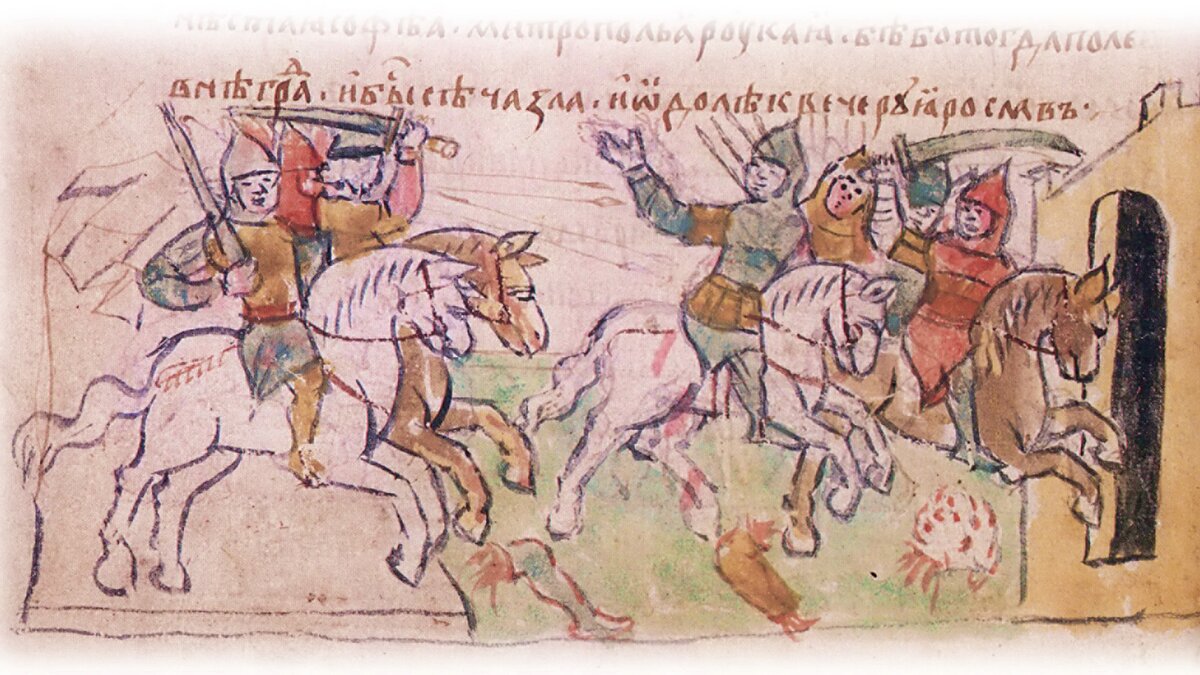 стаꙗ софѣꙗ · митропольꙗ роускаꙗ · бѣ бо тогда поле
внѣ граⷣ · и быⷭ сѣча зла · и ѡдолѣ к вечерꙋ ꙗрославъ ·